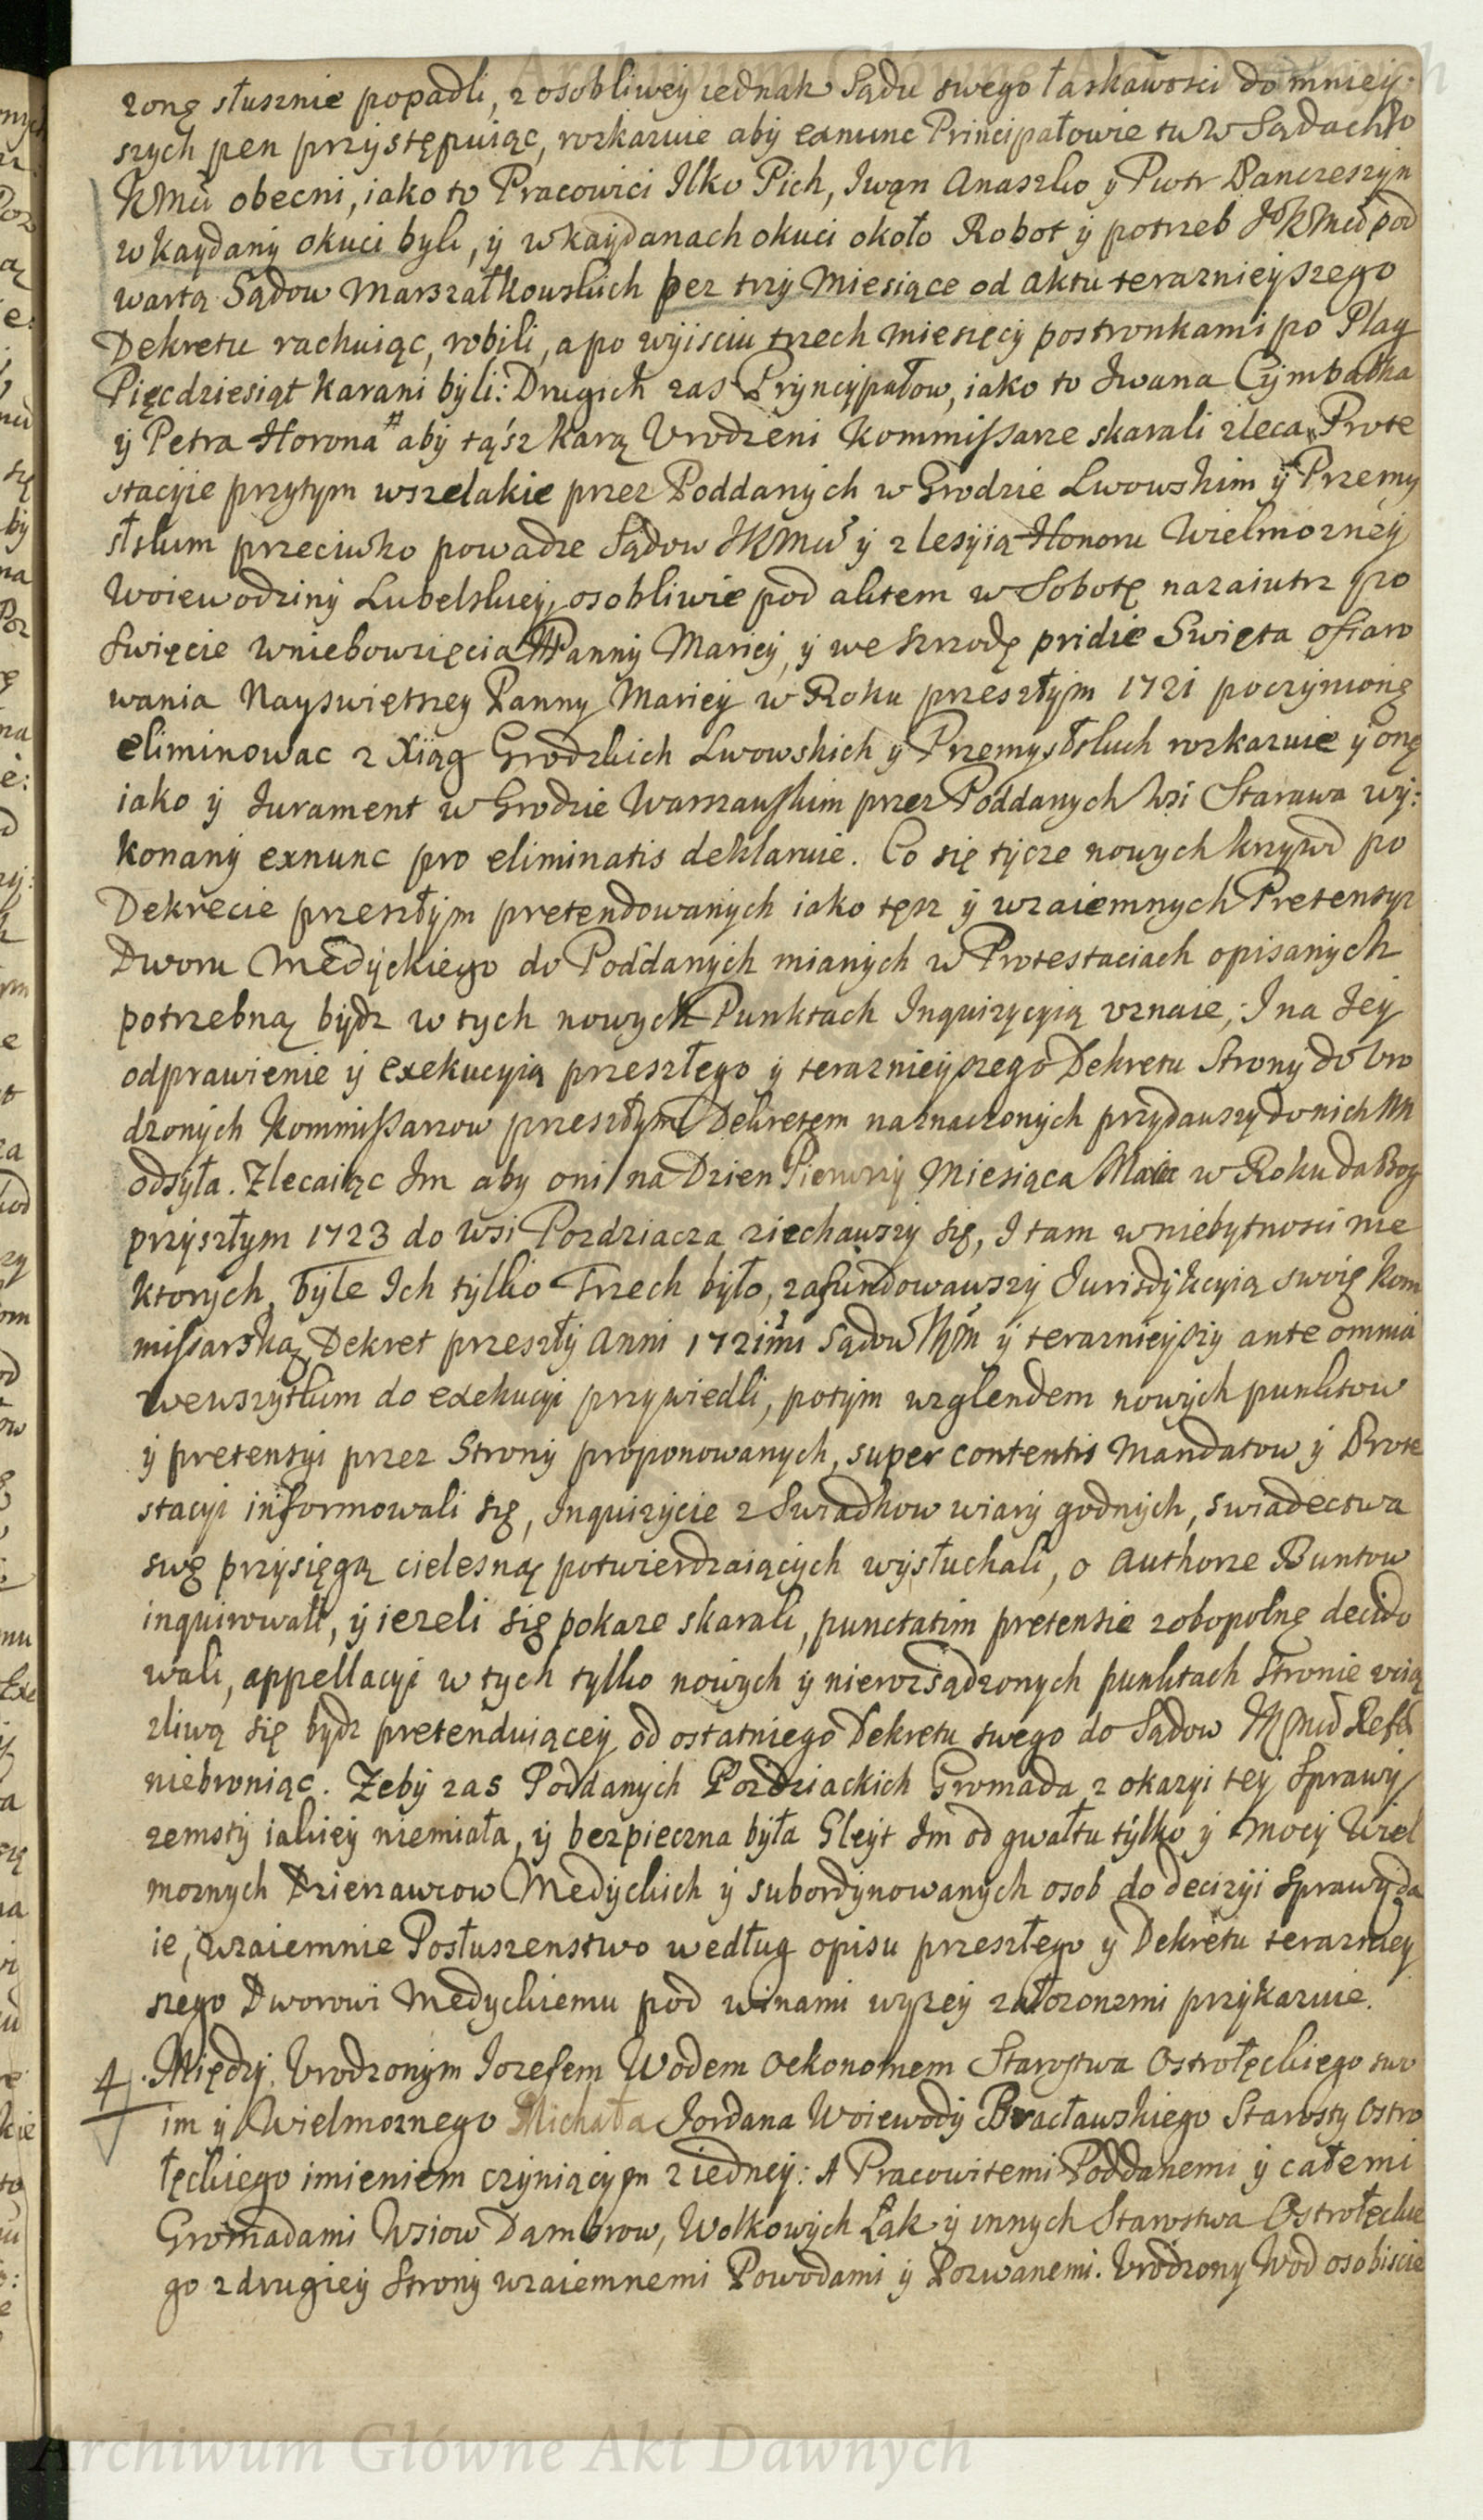 Archiwum Główne Akt Dawnych
zonę słusznie popadli, z osobliwey iednak Sądu swego łaskawosci do mniey-
szych pen przystępuiąc, rozkazuie aby exnunc Principałowie tu w Sądach Jo
KMci obecni, iako to Pracowici Ilko Pich, Iwąn Anaszko y Piotr Banczeszyn
w kaydany okuci byli, y w kaydanach okuci około Robot y potrzeb JoKMci pod
wartą Sądow Marszałkowskich per trzy Miesiące od aktu teraznieyszego
Dekretu rachuiąc, robili, a po wyisciu trzech miesięcy postronkami po Plag
Pięcdziesiąt karani byli: Drugich zas Pryncypałow, iako to Iwana Cymbałka
y Petra Horona # aby tąsz karą Vrodzeni Kommissarze skarali zleca, Prote
stacyie przytym wszelakie przez Poddanych w Grodzie Lwowskim y Przemy
słskim przeciwko powadze Sądow JKMci y z lesyią Honoru Wielmozney
Woiewodziny Lubelskiey, osobliwie pod aktem w Sobotę nazaiutrz po
Swięcie Wniebowzięcia Panny Mariey, y we Szrodę pridie Swięta ofiaro
wania Nayswiętszey Panny Mariey w Roku przeszłym 1721 poczynionę
eliminowac z Xiąg Grodzkich Lwowskich y Przemysłskich rozkazuie y onę
iako y Iurament w Grodzie Warszawskim przez Poddanych Wsi Starawa wy:
konany exnunc pro eliminatis deklaruie. Co się tycze nowych krzywd po
Dekrecie przeszłym pretendowanych iako tesz y wzaiemnych Pretensyi
Dworu Medyckiego do Poddanych mianych w Protestaciach opisanych
potrzebną bydz w tych nowych Punktach Inquizycyią vznaie; I na Jey
odprawienie y exekucyią przeszłego y teraznieyszego Dekretu Strony do Vro
dzonych Kommissarzow przeszłym Dekretem naznaczonych przydawszy do nich NN
odsyła. Zlecaiąc Im aby oni na Dzien Pierwszy Miesiąca Maia w Roku da Bog
przyszłym 1723 do Wsi Pozdziacza ziechawszy się, I tam w niebytnosci nie
ktorych, byle Ich tylko Trzech było, zafundowawszy Iurisdykcyią swoię Kom
missarską, Dekret przeszły Anni 1721mi Sądow JKM y teraznieyszy ante omnia
we wszytkim do exekucyi przywiedli, potym wzglendem nowych punktow
y pretensyi przez Strony proponowanych, super contentis Mandatow y Prote
stacyi informowali się, Inquizycie z Swiadkow wiary godnych, swiadectwa
swę przysięgą cielesną potwierdzaiących wysłuchali, o Authorze Buntow
inquirowali, y iezeli się pokaze skarali, punctatim pretensie zobopolnę decido
wali, appellacyi w tych tylko nowych y nierozsądzonych punktach Stronie vcią
zliwą się bydz pretenduiącey od ostatniego Dekretu swego do Sądow JKMci Refer
niebroniąc. Zeby zas Poddanych Pozdziackich Gromada z okazyi tey Sprawy
zemsty iakiey niemiała, y bezpieczna była Gleyt Im od gwałtu tylko y mocy Wiel
moznych Dzierzawcow Medyckich y subordynowanych osob do decizyi Sprawy da
ie, wzaiemnie Posłuszenstwo według opisu przeszłego y Dekretu terazniey
szego Dworowi Medyckiemu pod winami wyzey załozonemi przykazuie.
4. Między Vrodzonym Iozefem Wodem Oekonomem Starostwa Ostrołęckiego swo
im y Wielmoznego Michała Jordana Woiewody Bracławskiego Starosty Ostro
łęckiego imieniem czyniącym z iedney: A Pracowitemi Poddanemi y całemi
Gromadami Wsiow Dambrow, Wolkowych Łąk y innych Starostwa Ostrołęckie
go z drugiey Strony wzaiemnemi Powodami y Pozwanemi. Vrodzony Wod osobiscie
Archiwum Główne Akt Dawnych